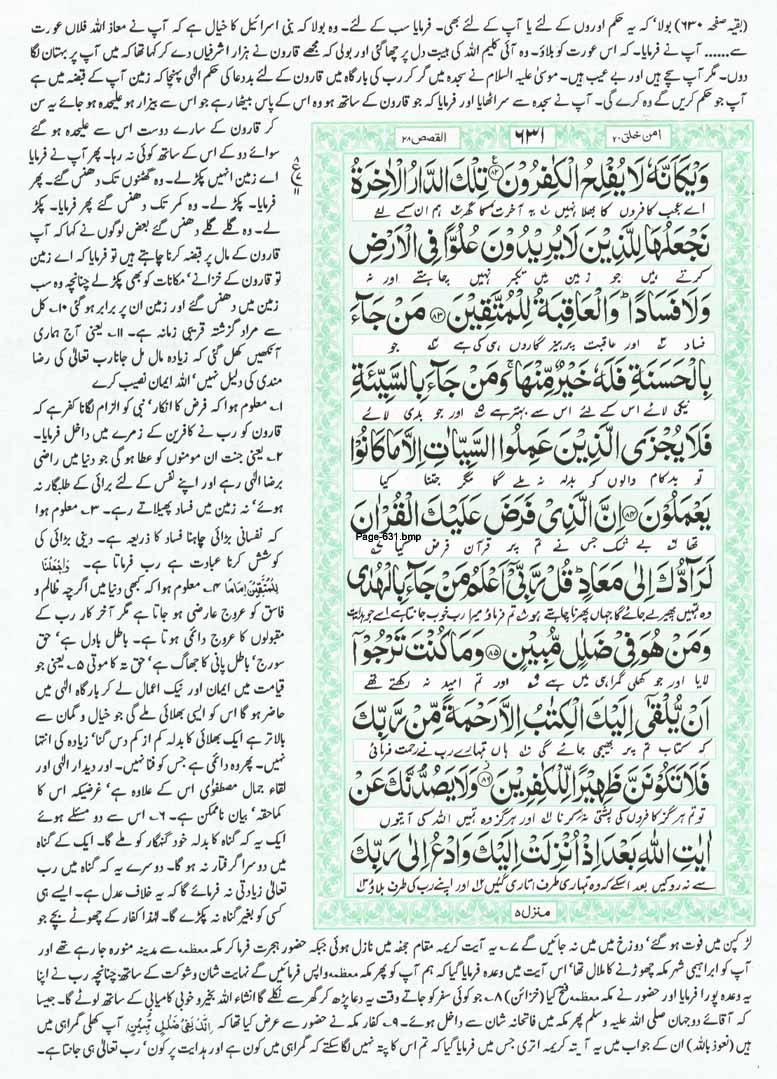 (بقیہ صفحہ ۶۳۰) بولا' کہ یہ حکم اوروں کے لئے یا آپ کے لئے بھی۔ فرمایا سب کے لئے۔ وہ بولا کہ بنی اسرائیل کا خیال ہے کہ آپ نے معاذ اللہ فلاں عورت
سے...... آپ نے فرمایا۔ کہ اس عورت کو بلاؤ۔ وہ آئی کلیم اللہ کی ہیبت دل پر چھا گئی اور بولی کہ مجھے قارون نے ہزار اشرفیاں دے کر کہا تھا کہ میں آپ پر بہتان لگا
دوں۔ مگر آپ سچے ہیں اور بے عیب ہیں۔ موسیٰ علیہ السلام نے سجدہ میں گر کر رب کی بارگاہ میں قارون کے لئے بددعا کی حکم الٰہی پہنچا کہ زمین آپ کے قبضہ میں ہے
آپ جو حکم کریں گے وہ کرے گی۔ آپ نے سجدہ سے سر اٹھایا اور فرمایا کہ جو قارون کے ساتھ ہو وہ اس کے پاس بیٹھا رہے جو اس سے بیزار ہو علیحدہ ہو جائے یہ سن
کر قارون کے سارے دوست اس سے علیحدہ ہو گئے
سوائے دو کے اس کے ساتھ کوئی نہ رہا۔ پھر آپ نے فرمایا
اے زمین انہیں پکڑ لے۔ وہ گھٹنوں تک دھنس گئے۔ پھر
فرمایا۔ پکڑ لے۔ وہ کمر تک دھنس گئے پھر فرمایا۔ پکڑ
لے۔ وہ گلے گلے دھنس گئے بعض لوگوں نے کہا کہ آپ
قارون کے مال پر قبضہ کرنا چاہتے ہیں تو فرمایا کہ اے زمین
تو قارون کے خزانے' مکانات کو بھی پکڑ لے چنانچہ وہ سب
زمین میں دھنس گئے اور زمین ان پر برابر ہو گئی ۱۰۔ کل
سے مراد گزشتہ قریبی زمانہ ہے۔ ۱۱۔ یعنی آج ہماری
آنکھیں کھل گئی کہ زیادہ مال مل جانا رب تعالیٰ کی رضا
مندی کی دلیل نہیں' اللہ ایمان نصیب کرے
۱۔ معلوم ہوا کہ فرض کا انکار' نبی کو الزام لگانا کفر ہے کہ
قارون کو رب نے کافرین کے زمرے میں داخل فرمایا۔
۲۔ یعنی جنت ان مومنوں کو عطا ہو گی جو دنیا میں راضی
برضا الٰہی رہے اور اپنے نفس کے لئے برائی کے طلبگار نہ
ہوئے' نہ زمین میں فساد پھیلاتے رہے۔ ۳۔ معلوم ہوا
کہ نفسانی بڑائی چاہنا فساد کا ذریعہ ہے۔ دینی بڑائی کی
کوشش کرنا عبادت ہے رب فرماتا ہے۔ وَاجْعَلْنَا
لِلْمُتَّقِیْنَ اِمَامًا ۴۔ معلوم ہوا کہ کبھی دنیا میں اگرچہ ظالم و
فاسق کو عروج عارضی ہو جاتا ہے مگر آخر کار رب کے
مقبولوں کا عروج دائمی ہوتا ہے۔ باطل بادل ہے' حق
سورج' باطل پانی کا جھاگ ہے' حق تہ کا موتی ۵۔ یعنی جو
قیامت میں ایمان اور نیک اعمال لے کر بارگاہ الٰہی میں
حاضر ہو گا اس کو ایسی بھلائی ملے گی جو خیال و گمان سے
بالاتر ہے ایک بھلائی کا بدلہ کم از کم دس گنا' زیادہ کی انتہا
نہیں۔ پھر وہ دائمی ہے جس کو فنا نہیں۔ اور دیدار الٰہی اور
لقاء جمال مصطفوی اس کے علاوہ ہے' غرضیکہ اس کا
کماحقہ' بیان ناممکن ہے۔ ۶۔ اس سے دو مسئلے ہوئے
ایک یہ کہ گناہ کا بدلہ خود گنہگار کو ملے گا۔ ایک کے گناہ
میں دوسرا گرفتار نہ ہو گا۔ دوسرے یہ کہ گناہ میں رب
تعالیٰ زیادتی نہ فرمائے گا کہ یہ خلاف عدل ہے۔ ایسے ہی
کسی کو بغیر گناہ نہ پکڑے گا۔ لہٰذا کفار کے چھوٹے بچے جو
القصص ۲۸
۶۳۱
امن خلق ۲۰
وَيْكَاَنَّهٗ لَا يُفْلِحُ الْكٰفِرُوْنَ ۸۲ تِلْكَ الدَّارُ الْاٰخِرَةُ
اے عجب کافروں کا بھلا نہیں ۱ یہ آخرت کا گھر ۲ ہم ان کے لئے
نَجْعَلُهَا لِلَّذِيْنَ لَا يُرِيْدُوْنَ عُلُوًّا فِى الْاَرْضِ
کرتے ہیں جو زمین میں تکبر نہیں چاہتے اور نہ
وَلَا فَسَادًا ؕ وَالْعَاقِبَةُ لِلْمُتَّقِيْنَ ۸۳ مَنْ جَآءَ
فساد ۳ اور عاقبت پرہیزگاروں ہی کی ہے ۴ جو
بِالْحَسَنَةِ فَلَهٗ خَيْرٌ مِّنْهَا ۚ وَمَنْ جَآءَ بِالسَّيِّئَةِ
نیکی لائے اس کے لئے اس سے بہتر ہے ۵ اور جو بدی لائے
فَلَا يُجْزَى الَّذِيْنَ عَمِلُوا السَّيِّاٰتِ اِلَّا مَا كَانُوْا
تو بدکام والوں کو بدلہ نہ ملے گا مگر جتنا کیا
يَعْمَلُوْنَ ۸۴ اِنَّ الَّذِىْ فَرَضَ عَلَيْكَ الْقُرْاٰنَ
تھا ۶ بے شک جس نے تم پر قرآن فرض کیا
Page-631.bmp
لَرَآدُّكَ اِلٰى مَعَادٍ ؕ قُلْ رَّبِّىْٓ اَعْلَمُ مَنْ جَآءَ بِالْهُدٰى
وہ تمہیں پھیر لے جائے گا جہاں پھرنا چاہتے ہو تم فرماؤ میرا رب خوب جانتا ہے اسے جو ہدایت
وَمَنْ هُوَ فِىْ ضَلٰلٍ مُّبِيْنٍ ۸۵ وَمَا كُنْتَ تَرْجُوْٓا
لایا اور جو کھلی گمراہی میں ہے اور تم امید نہ رکھتے تھے
اَنْ يُّلْقٰٓى اِلَيْكَ الْكِتٰبُ اِلَّا رَحْمَةً مِّنْ رَّبِّكَ
کہ کتاب تم پر بھیجی جائے گی ہاں تمہارے رب نے رحمت فرمائی
فَلَا تَكُوْنَنَّ ظَهِيْرًا لِّلْكٰفِرِيْنَ ۸۶ وَلَا يَصُدُّنَّكَ عَنْ
تو تم ہرگز کافروں کی پشتی نہ کرنا اور ہرگز وہ تمہیں اللہ کی آیتوں
اٰيٰتِ اللّٰهِ بَعْدَ اِذْ اُنْزِلَتْ اِلَيْكَ وَادْعُ اِلٰى رَبِّكَ
سے نہ روکیں بعد اسکے کہ وہ تمہاری طرف اتاری گئیں ۱۲ اور اپنے رب کی طرف بلاؤ ۱۳
منزل ۵
لڑکپن میں فوت ہو گئے' دوزخ میں میں نہ جائیں گے ۷۔ یہ آیت کریمہ مقام جحفہ میں نازل ہوئی جبکہ حضور ہجرت فرما کر مکہ معظمہ سے مدینہ منورہ جا رہے تھے اور
آپ کو ابراہیمی شہر مکہ چھوڑنے کا ملال تھا' اس آیت میں وعدہ فرمایا گیا کہ ہم آپ کو پھر مکہ معظمہ واپس فرمائیں گے نہایت شان و شوکت کے ساتھ چنانچہ رب نے اپنا
یہ وعدہ پورا فرمایا اور حضور نے مکہ معظمہ فتح کیا (خزائن) ۸۔ جو کوئی سفر کو جاتے وقت یہ دعا پڑھ کر گھر سے نکلے گا انشاء اللہ بخیر و خوبی کامیابی کے ساتھ لوٹے گا۔ جیسا
کہ آقائے دوجہان صلی اللہ علیہ وسلم پھر مکہ میں فاتحانہ شان سے داخل ہوئے۔ ۹۔ کفار مکہ نے حضور سے عرض کیا تھا کہ اِنَّكَ لَفِیْ ضَلٰلٍ مُّبِیْنٍ آپ کھلی گمراہی میں
ہیں (نعوذ باللہ) ان کے جواب میں یہ آیتہ کریمہ اتری جس میں فرمایا گیا کہ تم اس کا پتہ نہیں لگا سکتے کہ گمراہی میں کون ہے اور ہدایت پر کون' رب تعالیٰ ہی جانتا ہے۔